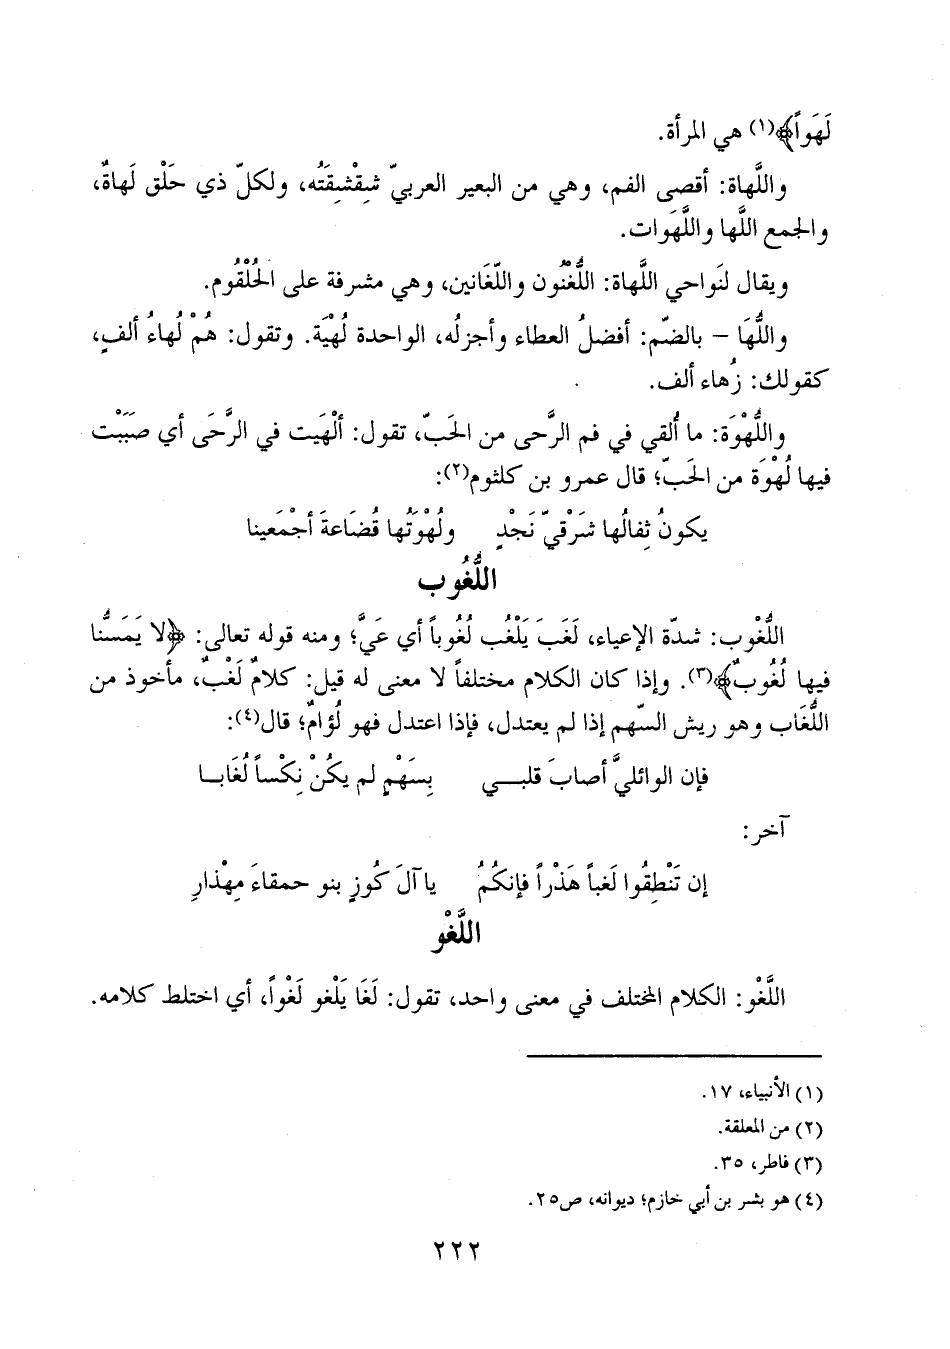 لَهَواً﴾(١) هي المرأة.
واللَّهاة: أقصى الفم، وهي من البعير العربيّ شِقْشِقَتُه، ولكلّ ذي حَلْق لَهاةٌ،
والجمع اللَّها واللَّهَوات.
ويقال لنَواحي اللَّهاة: اللُّغْنُون واللَّغَانين، وهي مشرفة على الحُلْقُوم.
واللُّهَا – بالضّم: أفضلُ العطاء وأجزلُه، الواحدة لُهْيَة. وتقول: هُمْ لُهاءُ ألفٍ،
كقولك: زُهاء ألف.
واللُّهْوَة: ما أُلقي في فم الرحى من الحَبّ، تقول: ألْهَيت في الرَّحَى أي صَبَبْت
فيها لُهْوَة من الحَبّ؛ قال عمرو بن كلثوم(٢):
يكونُ ثِفالُها شَرْقيّ نَجْدٍ ولُهْوَتُها قُضَاعةَ أجْمَعينا
اللُّغُوب
اللُّغْوب: شدّة الإعياء، لَغَبَ يَلْغُب لُغُوباً أي عَيَّ؛ ومنه قوله تعالى: ﴿لا يَمَسُّنا
فيها لُغُوبٌ﴾(٣). وإذا كان الكلام مختلفاً لا معنى له قيل: كلامٌ لَغْبٌ، مأخوذ من
اللُّغَاب وهو ريش السّهم إذا لم يعتدل، فإذا اعتدل فهو لُؤامٌ؛ قال(٤):
فإن الوائليَّ أصابَ قلبـي بِسَهْمٍ لم يكُنْ نِكْساً لُغَابـا
آخر:
إن تَنْطِقُوا لَغباً هَذْراً فإنكُمُ يا آلَ كُوزٍ بنو حمقاءَ مِهْذارِ
اللَّغْو
اللَّغْو: الكلام المختلف في معنى واحد، تقول: لَغَا يَلْغو لَغْواً، أي اختلط كلامه.
(١) الأنبياء، ١٧.
(٢) من المعلقة.
(٣) فاطر، ٣٥.
(٤) هو بشر بن أبي خازم؛ ديوانه، ص٢٥.
٢٢٢